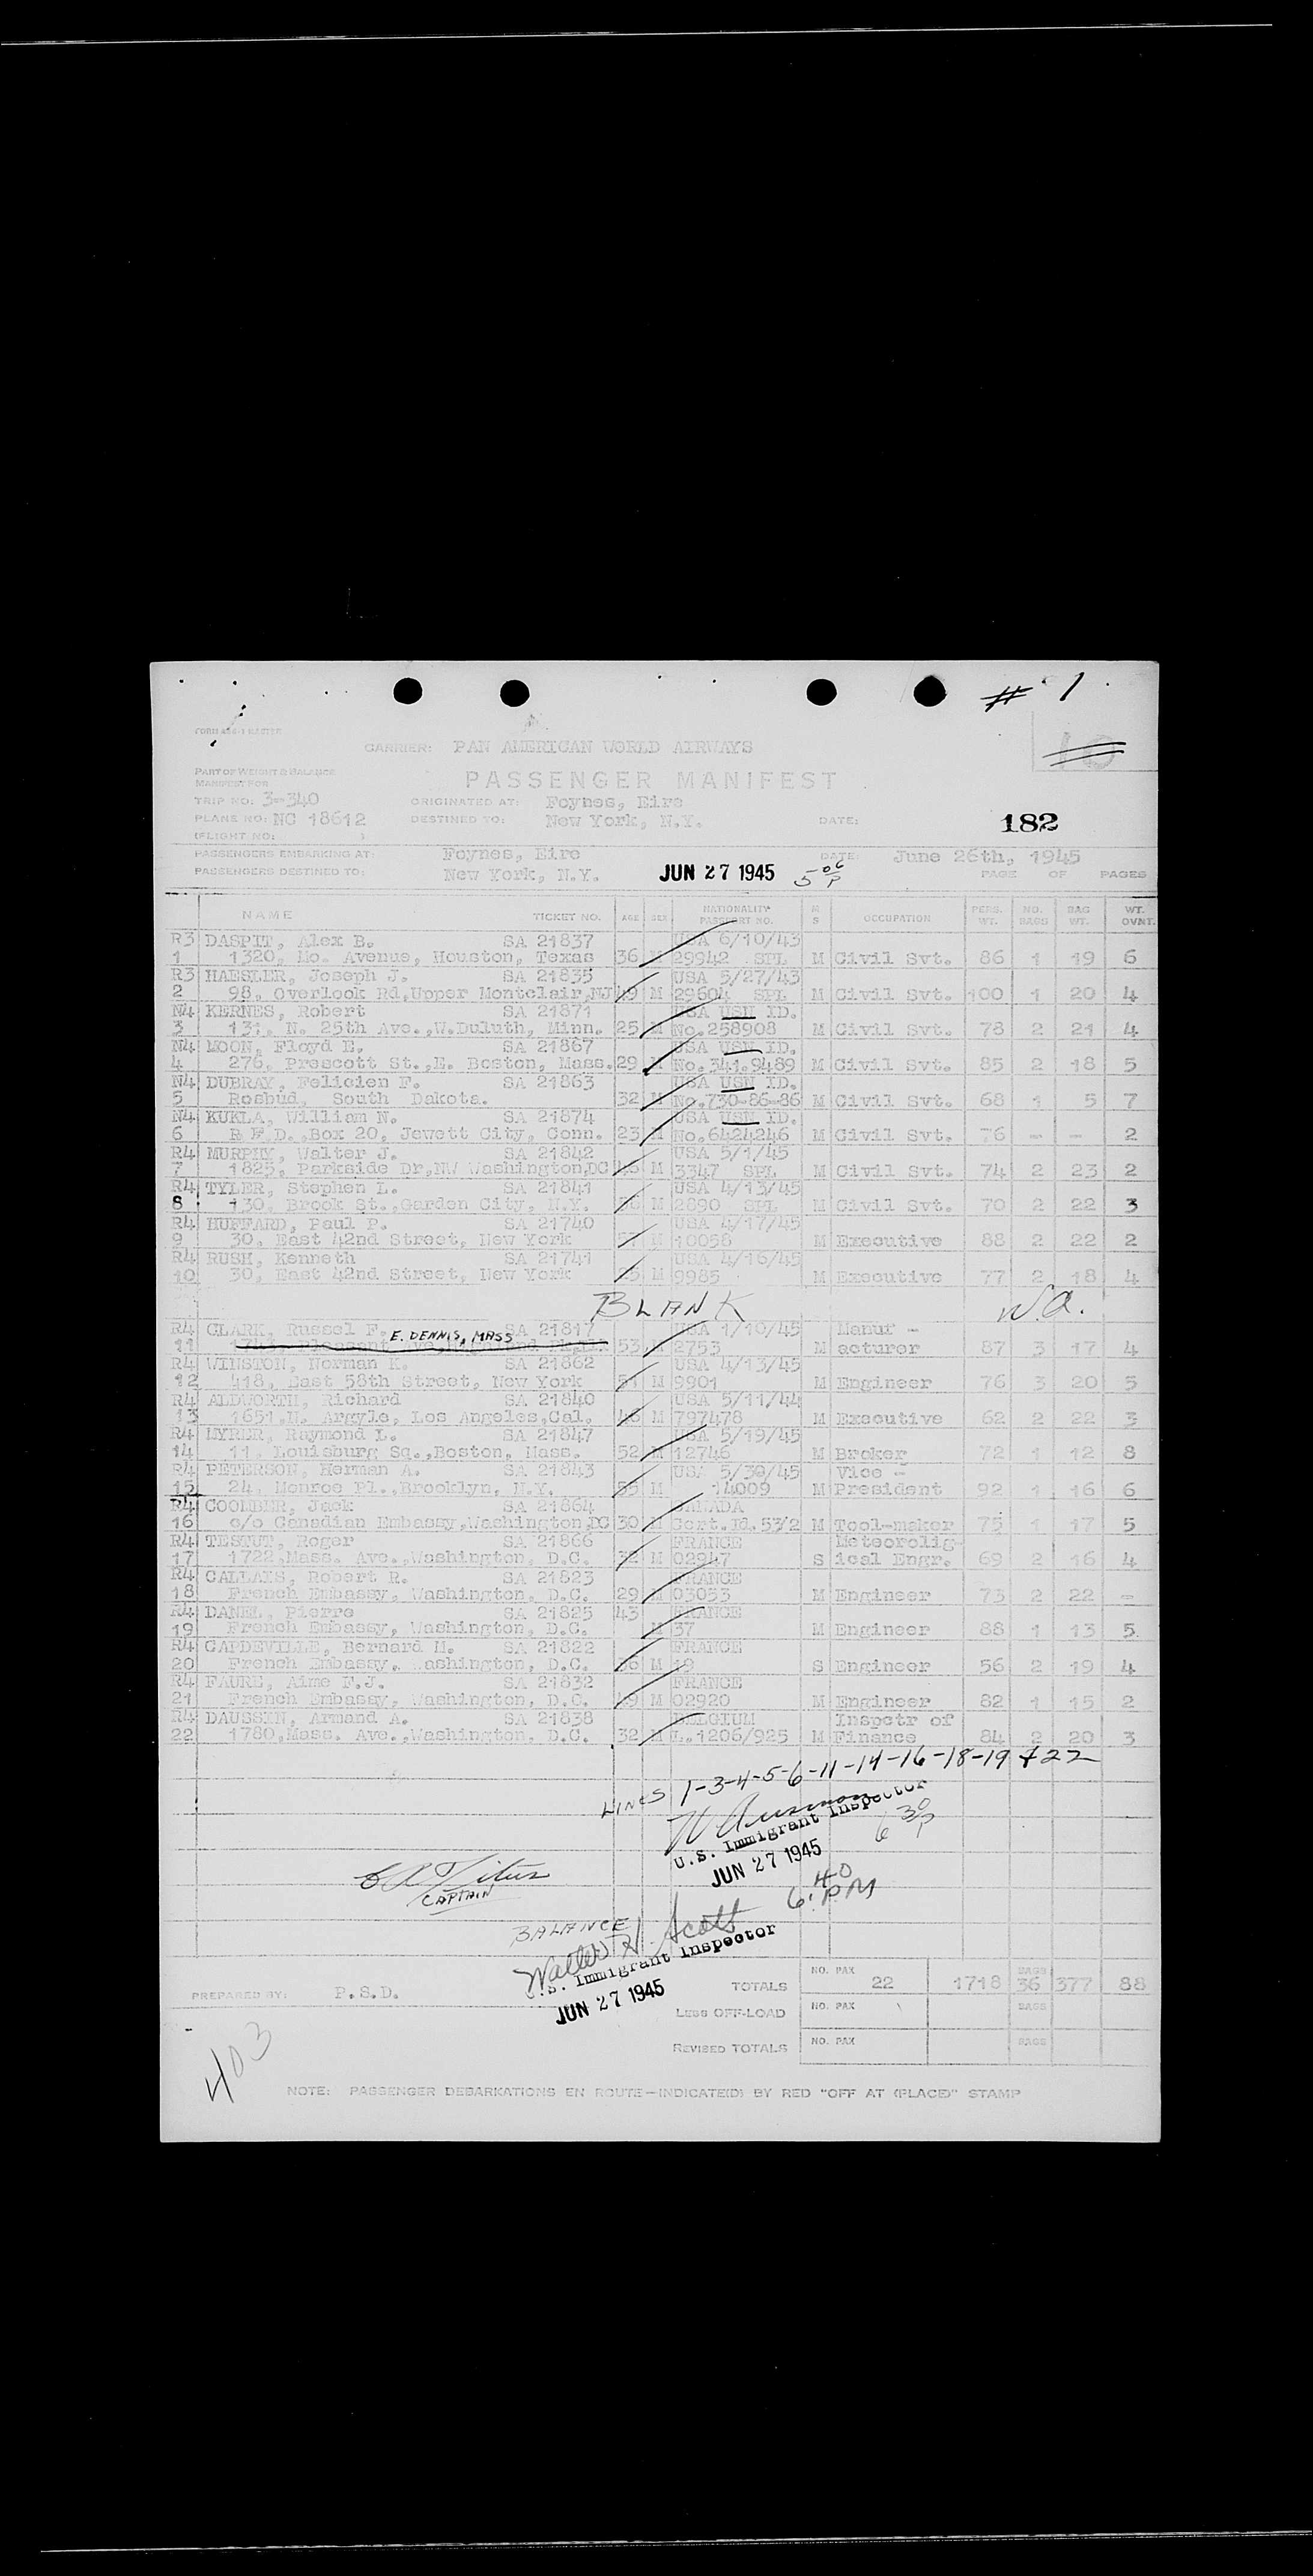 # 1
FORM 456-1 MASTER
10
CARRIER: PAN AMERICAN WORLD AIRWAYS
PART OF WEIGHT & BALANCE
MANIFEST FOR
PASSENGER MANIFEST
TRIP NO: 3-340 ORIGINATED AT: Foynes, Eire
PLANE NO: NC 18612 DESTINED TO: New York, N.Y. DATE: 182
(FLIGHT NO: )
PASSENGERS EMBARKING AT: Foynes, Eire DATE: June 26th, 1945
PASSENGERS DESTINED TO: New York, N.Y. JUN 27 1945 5 06 P PAGE OF PAGES
NAME TICKET NO. AGE SEX NATIONALITY PASSPORT NO. M S OCCUPATION PERS. WT. NO. BAGS BAG WT. WT. OVNT.
R3 DASPIT, Alex B. SA 21837 USA 6/10/43
1 1320, Mo. Avenue, Houston, Texas 36 M 29942 SPL M Civil Svt. 86 1 19 6
R3 HAESLER, Joseph J. SA 21835 USA 5/27/43
2 98, Overlook Rd,Upper Montclair,NJ 49 M 29604 SPL M Civil Svt. 100 1 20 4
N4 KERNES, Robert SA 21871 USA USN ID.
3 131, N. 25th Ave.,W.Duluth, Minn. 25 M No.258908 M Civil Svt. 78 2 21 4
N4 MOON, Floyd E. SA 21867 USA USN ID.
4 276, Prescott St.,E. Boston, Mass. 29 M No.341.9489 M Civil Svt. 85 2 18 5
N4 DUBRAY, Felicien F. SA 21863 USA USN ID.
5 Rosbud, South Dakota. 32 M No.730-86-86 M Civil Svt. 68 1 5 7
N4 KUKLA, William N. SA 21874 USA USN ID.
6 R.F.D.,Box 20, Jewett City, Conn. 23 M No.6424246 M Civil Svt. 76 - - 2
R4 MURPHY, Walter J. SA 21842 USA 5/1/45
7 1825, Parkside Dr,NW Washington,DC 46 M 3347 SPL M Civil Svt. 74 2 23 2
R4 TYLER, Stephen L. SA 21841 USA 4/13/45
8 130, Brook St.,Garden City, N.Y. M 2890 SPL M Civil Svt. 70 2 22 3
R4 HUFFARD, Paul P. SA 21740 USA 4/17/45
9 30, East 42nd Street, New York M 10058 M Executive 88 2 22 2
R4 RUSH, Kenneth SA 21741 USA 4/16/45
10 30, East 42nd Street, New York M 9985 M Executive 77 2 18 4
BLANK W.A.
R4 CLARK, Russel F. SA 21817 USA 1/10/45 Manuf -
11 E. DENNIS, MASS 53 M 2753 M acturer 87 3 17 4
R4 WINSTON, Norman K. SA 21862 USA 4/13/45
12 418, East 58th Street, New York M 9901 M Engineer 76 3 20 5
R4 ALDWORTH, Richard SA 21840 USA 5/11/44
13 1651,N. Argyle, Los Angeles,Cal. 48 M 797478 M Executive 62 2 22 3
R4 MYRER, Raymond L. SA 21847 USA 5/19/45
14 11, Louisburg Sq.,Boston, Mass. 52 M 12746 M Broker 72 1 12 8
R4 PETERSON, Herman A. SA 21843 USA 5/30/45 Vice -
15 24, Monroe Pl.,Brooklyn, N.Y. 55 M 14009 M President 92 1 16 6
R4 COOMBER, Jack SA 21864 CANADA
16 c/o Canadian Embassy,Washington,DC 30 M Cert.Id.53/2 M Tool-maker 75 1 17 5
R4 TESTUT, Roger SA 21866 FRANCE Meteorolig-
17 1722,Mass. Ave.,Washington, D.C. 32 M 02947 S ical Engr. 69 2 16 4
R4 CALLAIS, Robert R. SA 21823 FRANCE
18 French Embassy, Washington, D.C. 29 M 03053 M Engineer 73 2 22 -
R4 DANEL, Pierre SA 21825 43 FRANCE
19 French Embassy, Washington, D.C. M 37 M Engineer 88 1 13 5
R4 CAPDEVILLE, Bernard M. SA 21822 FRANCE
20 French Embassy, Washington, D.C. M 18 S Engineer 56 2 19 4
R4 FAURE, Aime F.J. SA 21832 FRANCE
21 French Embassy, Washington, D.C. 49 M 02920 M Engineer 82 1 15 2
R4 DAUSSIN, Armand A. SA 21838 BELGIUM Inspctr of
22 1780,Mass. Ave.,Washington, D.C. 32 M L.1206/925 M Finance 84 2 20 3
LINES 1-3-4-5-6-11-14-16-18-19 + 22
U.S. Immigrant Inspector 6 30 P
JUN 27 1945
CAPTAIN
6:40 PM
BALANCE
Walter H. Scott
U.S. Immigrant Inspector
JUN 27 1945
PREPARED BY: P.S.D.
TOTALS NO. PAX 22 1718 BAGS 36 377 88
LESS OFF-LOAD NO. PAX BAGS
REVISED TOTALS NO. PAX BAGS
403
NOTE: PASSENGER DEBARKATIONS EN ROUTE—INDICATE(D) BY RED "OFF AT (PLACE)" STAMP